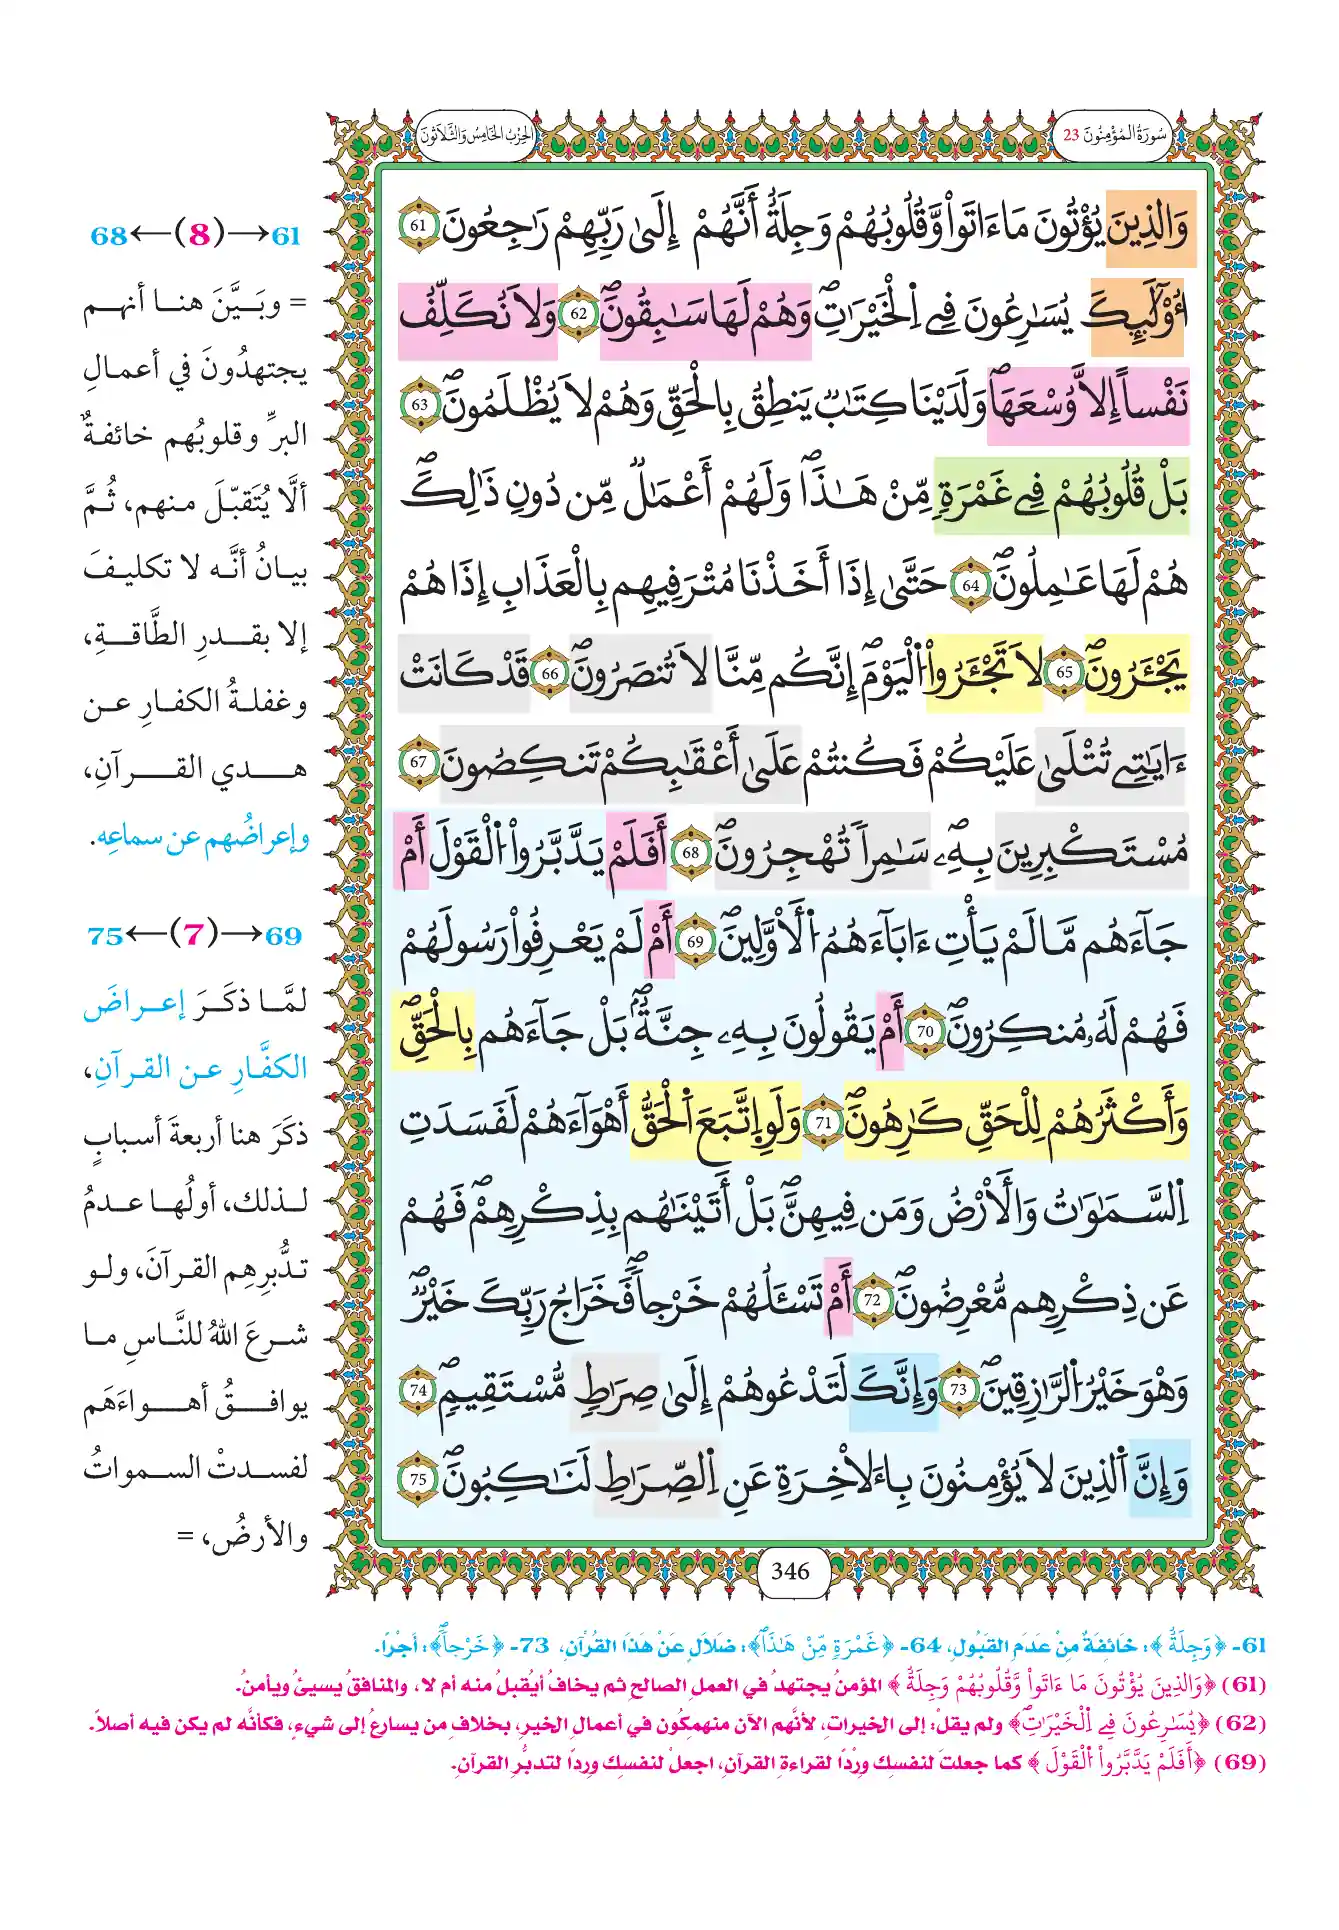 سُورَةُ المُؤْمِنُونَ 23
الحِزْبُ الخَامِسُ وَالثَّلَاثُونَ
وَالذِينَ يُؤْتُونَ مَا ءَاتَواْ وَّقُلُوبُهُمْ وَجِلَةٌ أَنَّهُمْ إِلَىٰ رَبِّهِمْ رَٰجِعُونَ 61
أُوْلَٰٓئِكَ يُسَٰرِعُونَ فِے اِ۬لْخَيْرَٰتِۖ وَهُمْ لَهَا سَٰبِقُونَۖ 62 وَلَا نُكَلِّفُ
نَفْساً إِلَّا وُسْعَهَاۖ وَلَدَيْنَا كِتَٰبٞ يَنطِقُ بِالْحَقِّ وَهُمْ لَا يُظْلَمُونَۖ 63
بَلْ قُلُوبُهُمْ فِے غَمْرَةٖ مِّنْ هَٰذَاۖ وَلَهُمُۥٓ أَعْمَٰلٞ مِّن دُونِ ذَٰلِكَۖ
هُمْ لَهَا عَٰمِلُونَۖ 64 حَتَّىٰ إِذَا أَخَذْنَا مُتْرَفِيهِم بِالْعَذَابِ إِذَا هُمْ
يَجْـَٔرُونَۖ 65 لَا تَجْـَٔرُواْ اُ۬لْيَوْمَۖ إِنَّكُم مِّنَّا لَا تُنصَرُونَۖ 66 قَدْ كَانَتْ
ءَايَٰتِے تُتْلَىٰ عَلَيْكُمْ فَكُنتُمْ عَلَىٰ أَعْقَٰبِكُمْ تَنكِصُونَ 67
مُسْتَكْبِرِينَ بِهِۦ سَٰمِراٗ تُهْجِرُونَۖ 68 أَفَلَمْ يَدَّبَّرُواْ اُ۬لْقَوْلَ أَمْ
جَآءَهُم مَّا لَمْ يَأْتِ ءَابَآءَهُمُ اُ۬لَاوَّلِينَۖ 69 أَمْ لَمْ يَعْرِفُواْ رَسُولَهُمْ
فَهُمْ لَهُۥ مُنكِرُونَۖ 70 أَمْ يَقُولُونَ بِهِۦ جِنَّةُۢۖ بَلْ جَآءَهُم بِالْحَقِّۖ
وَأَكْثَرُهُمْ لِلْحَقِّ كَٰرِهُونَۖ 71 وَلَوِ اِ۪تَّبَعَ اَ۬لْحَقُّ أَهْوَآءَهُمْ لَفَسَدَتِ
اِ۬لسَّمَٰوَٰتُ وَالَارْضُ وَمَن فِيهِنَّۖ بَلْ أَتَيْنَٰهُم بِذِكْرِهِمْۖ فَهُمْ
عَن ذِكْرِهِم مُّعْرِضُونَۖ 72 أَمْ تَسْـَٔلُهُمْ خَرْجاٗۖ فَخَرَاجُ رَبِّكَ خَيْرٞۖ
وَهُوَ خَيْرُ اُ۬لرَّٰزِقِينَۖ 73 وَإِنَّكَ لَتَدْعُوهُمْ إِلَىٰ صِرَٰطٖ مُّسْتَقِيمٖۖ 74
وَإِنَّ اَ۬لذِينَ لَا يُؤْمِنُونَ بِالَاخِرَةِ عَنِ اِ۬لصِّرَٰطِ لَنَٰكِبُونَۖ 75
346
61←(8)→68
= وبَيَّنَ هنا أنهم
يجتهدُونَ في أعمالِ
البرِّ وقلوبُهم خائفةٌ
ألَّا يُتَقبّلَ منهم، ثُمَّ
بيانُ أنَّه لا تكليفَ
إلا بقدرِ الطَّاقةِ،
وغفلةُ الكفارِ عن
هدي القرآنِ،
وإعراضُهم عن سماعِه.
69←(7)→75
لمَّا ذكَرَ إعراضَ
الكفَّارِ عن القرآنِ،
ذكَرَ هنا أربعةَ أسبابٍ
لذلك، أولُها عدمُ
تدُّبرِهِم القرآنَ، ولو
شرعَ اللهُ للنَّاسِ ما
يوافقُ أهواءَهَم
لفسدتْ السمواتُ
والأرضُ، =
61- ﴿وَجِلَةٌ﴾: خَائِفَةٌ مِنْ عَدَمِ القَبُولِ، 64- ﴿غَمْرَةٖ مِّنْ هَٰذَاۖ﴾: ضَلَالٍ عَنْ هَذَا القُرْآنِ، 73- ﴿خَرْجاٗۖ﴾: أَجْرًا.
(61) ﴿وَالذِينَ يُؤْتُونَ مَا ءَاتَواْ وَّقُلُوبُهُمْ وَجِلَةٌ﴾ المؤمنُ يجتهدُ في العملِ الصالحِ ثم يخافُ أيُقبلُ منه أم لا، والمنافقُ يسيئُ ويأمنُ.
(62) ﴿يُسَٰرِعُونَ فِے اِ۬لْخَيْرَٰتِۖ﴾ ولم يقلْ: إلى الخيراتِ، لأنَّهم الآن منهمكُون في أعمالِ الخيرِ، بخلافِ من يسارعُ إلى شيءٍ، فكأنَّه لم يكن فيه أصلاً.
(69) ﴿أَفَلَمْ يَدَّبَّرُواْ اُ۬لْقَوْلَ﴾ كما جعلتَ لنفسِك وِرْدًا لقراءةِ القرآنِ، اجعلْ لنفسِك وِردًا لتدبُّرِ القرآنِ.